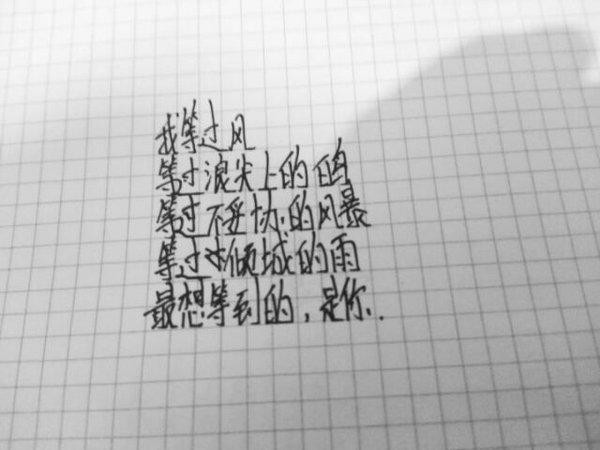 我等过风
等过浪尖上的
等过不妥协的风暴
等过倾城的雨
最想等到的，是你.